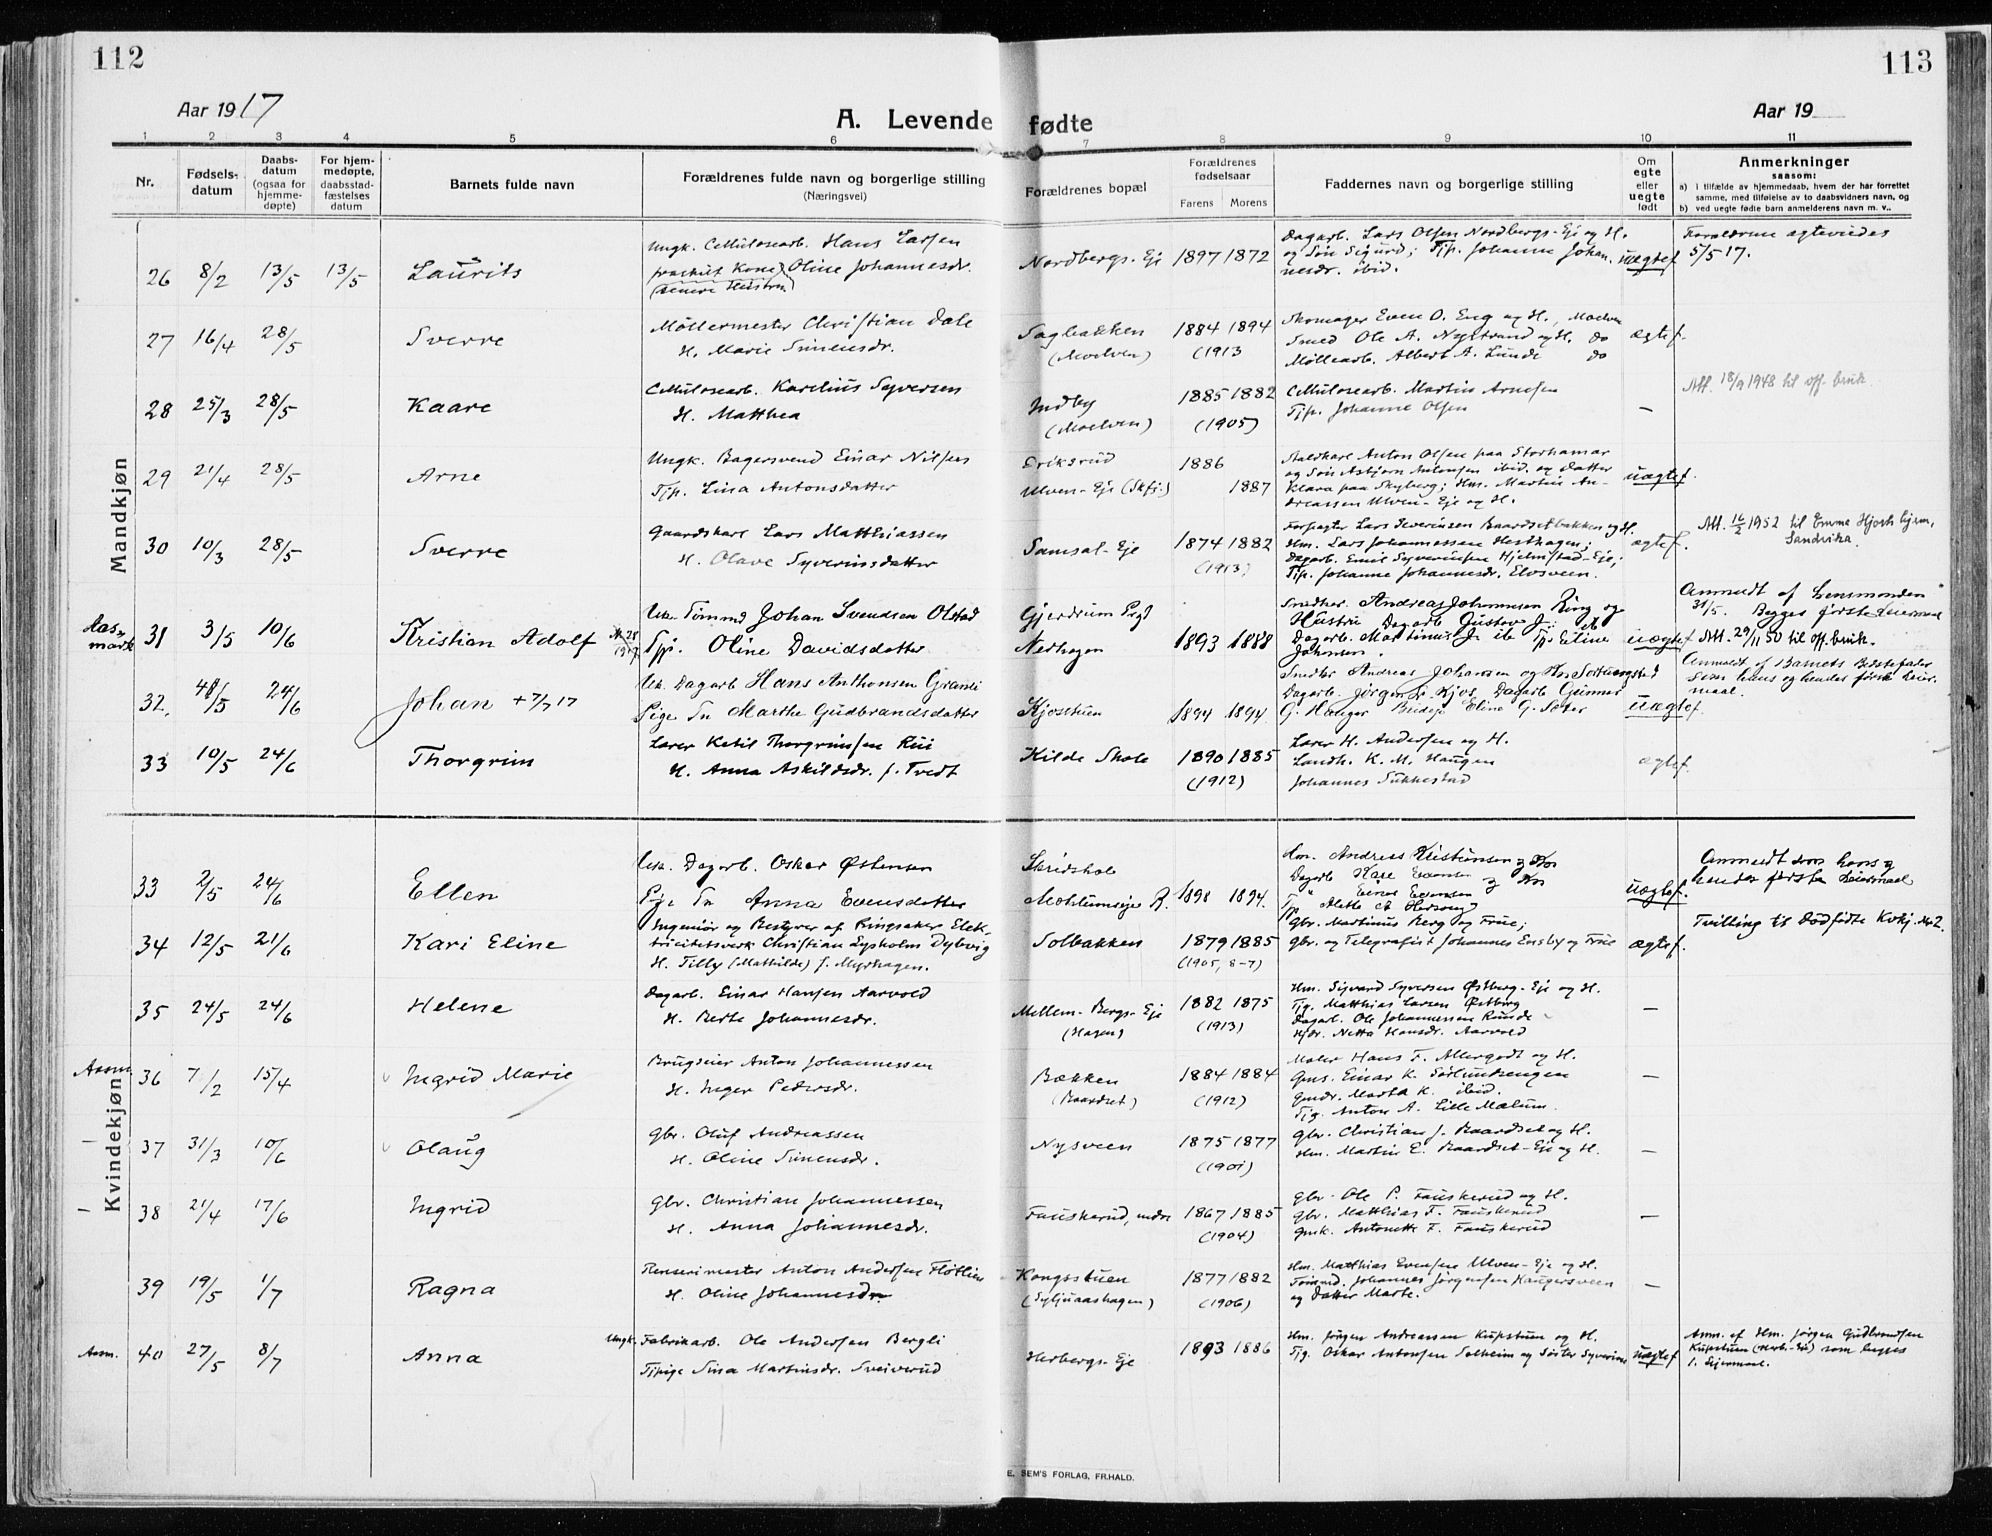 112
113
Aar 1917
A. Levende fødte
Aar 19
1 2 3 4 5 6 7 8 9 10 11
Nr.
Fødsels-
datum
Daabs-
datum
(ogsaa for
hjemme-
døpte)
For hjem-
medøpte,
daabsstad-
fæstelses
datum
Barnets fulde navn
Forældrenes fulde navn og borgerlige stilling
(Næringsvei)
Forældrenes bopæl
Forældrenes
fødselsaar
Farens Morens
Faddernes navn og borgerlige stilling
Om
egte
eller
uegte
født
Anmerkninger
saasom:
a) i tilfælde av hjemmedaab, hvem der har forrettet
samme, med tilføielse av to daabsvidners navn, og
b) ved uegte fødte barn anmelderens navn m. v..
Mandkjøn
Ungk. Cellulosearb. Hans Larsen
26 8/2 13/5 13/5 Laurits
Oline Johannesdr.
Nordbergs-Eje 1897 1872
Dagarb. Lars Olsen Nordbergs-Eje og H.
og Søn Sigurd; Tjp. Johanne Johan-
nesdr. ibid.
uægtef.
5/5 17.
27 16/4 28/5 Sverre
Møllermester Christian Dale
H. Marie Simensdr.
Sagbakken
(Moelven)
1884 1894
(1913
Skomager Even O. Eng og H., Moelven
Smed Ole A. Nystrand og H. do
Møllearb. Albert A. Lunde do
ægtef.
28 25/3 28/5 Kaare
Cellulosearb. Karelius Syversen
H. Matthea
Indby
(Moelven)
1885 1882
(1905)
Cellulosearb. Martin Arnesen
Tjp. Johanne Olsen
—
Att. 18/9 1948 til off. bruk.
29 21/4 28/5 Arne
Ungk. Bagersvend Einar Nilsen
Tjp. Lina Antonsdatter
Eriksrud
Ulven-Eje (Skfj.)
1886
1887
Staldkarl Anton Olsen paa Storhamar
og Søn Asbjørn Antonsen ibid. og Datter
Klara paa Skyberg; Hm. Martin An-
dreassen Ulven-Eje og H.
uægtef.
30 10/3 28/5 Sverre
Gaardskarl Lars Matthiassen
H. Olave Syverinsdatter
Samsal-Eje
1874 1882
(1913)
Forpagter Lars Severinsen Baardsetbakken og H.
Hm. Lars Johannessen Hesthagen;
Dagarb. Emil Syverinsen Hjelmstad-Eje;
Tjp. Johanne Johannesdr. Elvsveen.
ægtef.
Att. 16/2 1952 til Emma Hjorth hjem,
Sandvika.
31 3/5 10/6 Kristian Adolf
Johan Svendsen Olstad
Tjp. Oline Davidsdatter
Gjerdrum Pgd
Nerhagen
1893 1888
Snedker Andreas Johannesen Ring og
Hustru
uægtef.
Anmeldt af Lensmanden
31/5. Begges første Leiermaal
Att. 29/11 50 til off. bruk.
32. 48/5 24/6 Johan + 7/7 17
Dagarb Hans Anthonsen Granli
Pige Marthe Gudbrandsdatter
Kjosstuen 1894 1894
uægtef.
33 10/5 24/6 Thorgrim
Lærer Ketil Thorgrimsen Rui
H. Anna Askildsdr. f. Tvedt
Kilde Skole
1890 1885
(1912)
Lærer H. Andersen og H.
Landh. K. M. Haugen
Johannes Sukkestad
ægtef.
Kvindekjøn
33 2/5 24/6 Ellen
Dagarb. Oskar Østensen
Anna Evensdatter
Skridshol
1898 1894.
uægtef.
34 12/5 21/6 Kari Eline
Ingeniør og Bestyrer af Ringsaker Elek-
tricitetsverk Christian Lysholm Dybvig
H. Tilly (Mathilde) f. Myrhagen.
Solbakken
1879 1885
(1905, 8-7)
Gbr. Martinus Berg og Frue;
Gbr. og Telegrafist Johannes Ensby og Frue
ægtef.
Tvilling til dødfødte Kvkj. No 2.
35 24/5 24/6 Helene
Dagarb. Einar Hansen Aarvold
H. Berte Johannesdr.
Mellem-Bergs-Eje
(Hagen)
1882 1875
(1913)
Hm. Sigvard Syversen Østberg-Eje og H.
Tjg. Matthias Larsen Østberg
Dagarb. Ole Johannessen Runde
Netta Hansdr. Aarvold
—
Aasm. 36 7/2 15/4 Ingrid Marie
Brugseier Anton Johannessen
H. Inger Pedersdr.
Bækken
(Baardset)
1884 1884
(1912)
Maler Hans F. Allergodt og H.
Gms. Einar K. Sørlundsengen
Gmdr. Marta K. ibid.
Tjg. Anton A. Lille Mælum.
—
— 37 31/3 10/6 Olaug
Gbr. Oluf Andreassen
H. Oline Simensdr.
Nysveen
1875 1877
(1901)
Gbr. Christian J. Baardset og H.
Hm. Martin E. Baardset-Eje og H.
—
— 38 21/4 17/6 Ingrid
Gbr. Christian Johannessen
H. Anna Johannesdr.
Fauskerud, nedre
1867 1885
(1904)
Gbr. Ole P. Fauskerud og H.
Gbr. Matthias F. Fauskerud
Gmk. Antonette F. Fauskerud
—
39 19/5 1/7 Ragna
Renserimester Anton Andersen Fløtlien
H. Oline Johannesdr.
Kongsstuen
1877 1882
(1906)
Hm. Matthias Evensen Ulven-Eje og H.
Tømmd. Johannes Jørgensen Haugersveen
og Datter Marte.
—
Aasm. 40 27/5 8/7 Anna
Ungk. Fabrikarb. Ole Andersen Bergli
Tjpige Sina Martinsdr. Sveiverud
Herbergs-Eje 1893 1886
Hm. Jørgen Andreassen Kupstuen og H.
Tjg. Oskar Antonsen Solheim og Søster Syverine
uægtef.
Anm. af Hm. Jørgen Gudbrandsen
Kupstuen (Herb.-Eje) som begges
1. Lejermaal.
E. SEM'S FORLAG, FR.HALD.